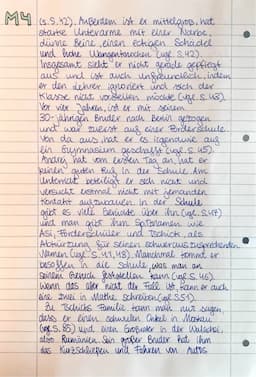 M4
(s. S. 42). Außerdem ist er mittelgroß, hat
starke Unterarme mit einer Narbe,
dünne Beine, einen eckigen Schädel
und hohe Wangenknochen (vgl. S. 42).
Insgesamt sieht er nicht gerade gepflegt
aus und ist auch unfreundlich, indem
er den Lehrer ignoriert und sich der
Klasse nicht vorstellen möchte (vgl. S. 45).
Vor vier Jahren, ist er mit seinem
30-jährigen Bruder nach Berlin gezogen
und war zuerst auf einer Förderschule.
Von da aus, hat er es irgendwie auf
ein Gymnasium geschafft (vgl. S. 45).
Andrej hat vom ersten Tag an, hat er
keinen guten Ruf in der Schule. Am
Unterricht beteiligt er sich nicht und
versucht erstmal nicht mit jemanden
Kontakt aufzubauen. In der Schule
gibt es viele Gerüchte über ihn (vgl. S. 47)
und man gibt ihm Spitznamen wie
Asi, Förderschüler und Tschick, als
Abkürzung für seinen schwerauszusprechenden
Namen (vgl. S. 41, 48). Manchmal kommt er
besoffen in die Schule, was man an
seinem Geruch feststellen kann (vgl. S. 45).
Wenn das aber nicht der Fall ist, kann er auch
eine zwei in Mathe schreiben (vgl. S51).
Zu Tschicks Familie kann man nur sagen,
dass er einen schwulen Onkel in Moskau
(vgl. S. 85) und einen Großvater in der Walachei,
also Rumänien. Sein großer Bruder hat ihm
das Kurzschließen und Fahren von Autos